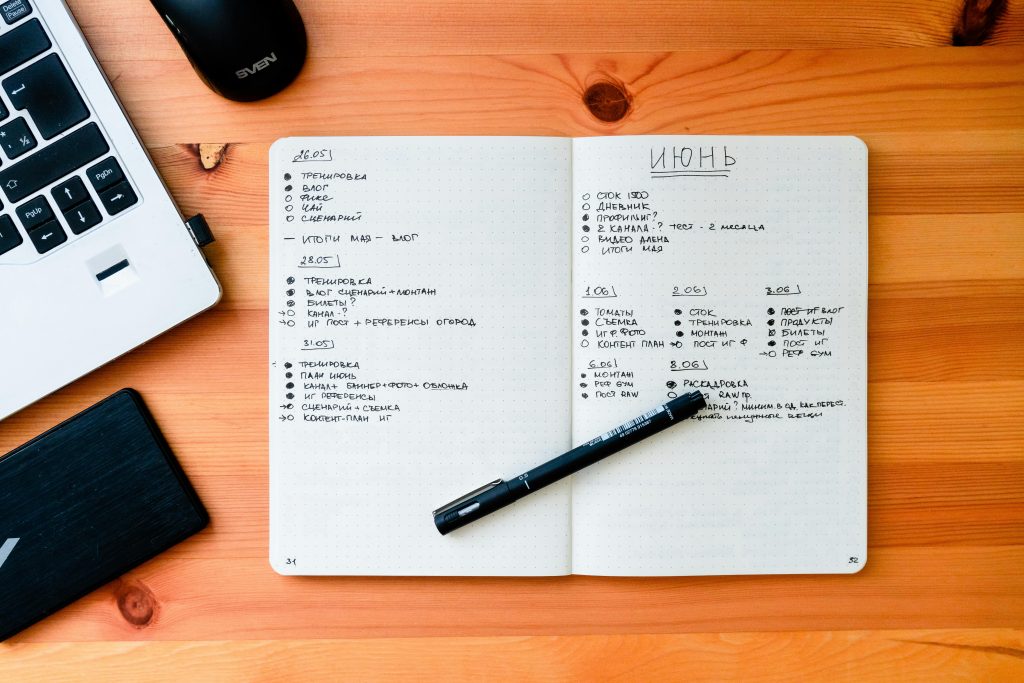 Delete
(Pause)
SVEN
PgUp
PgDn
26.05
ТРЕНИРОВКА
ВЛОГ
ФИКС
ЧАЙ
СЦЕНАРИЙ
— ИТОГИ МАЯ – ВЛОГ
28.05
ТРЕНИРОВКА
ВЛОГ СЦЕНАРИЙ+МОНТАЖ
БИЛЕТЫ?
→ КАНАЛ-?
→ ИГ ПОСТ + РЕФЕРЕНСЫ ОГОРОД
31.05
ТРЕНИРОВКА
ПЛАН ИЮНЬ
КАНАЛ+ БАННЕР+ФОТО+ ОБЛОЖКА
ИГ РЕФЕРЕНСЫ
→ СЦЕНАРИЙ+СЪЕМКА
→ КОНТЕНТ-ПЛАН ИГ
31
ИЮНЬ
СТОК 1500
ДНЕВНИК
ПРОФИЛИНГ?
2 КАНАЛА-? ТЕСТ – 2 МЕСАЦА
ВИДЕО АЛЕНА
ИТОГИ МАЯ
1.06
ТОМАТЫ
СЪЕМКА
ИГ Ф ФОТО
КОНТЕНТ ПЛАН
2.06
СТОК
ТРЕНИРОВКА
МОНТАЖ
→ ПОСТ ИГ Ф
3.06
ПОСТ ИГ ВЛОГ
ПРОДУКТЫ
БИЛЕТЫ
ПОСТ ИГ
→ РЕФ GYM
6.06
МОНТАЖ
РЕФ GYM
ПОСТ RAW
8.06
РАСКАДРОВКА
RAW ПР.
? МИНИМ В ОД. КАК ПЕРЕСТ.
ненужные вещи
0.5
52